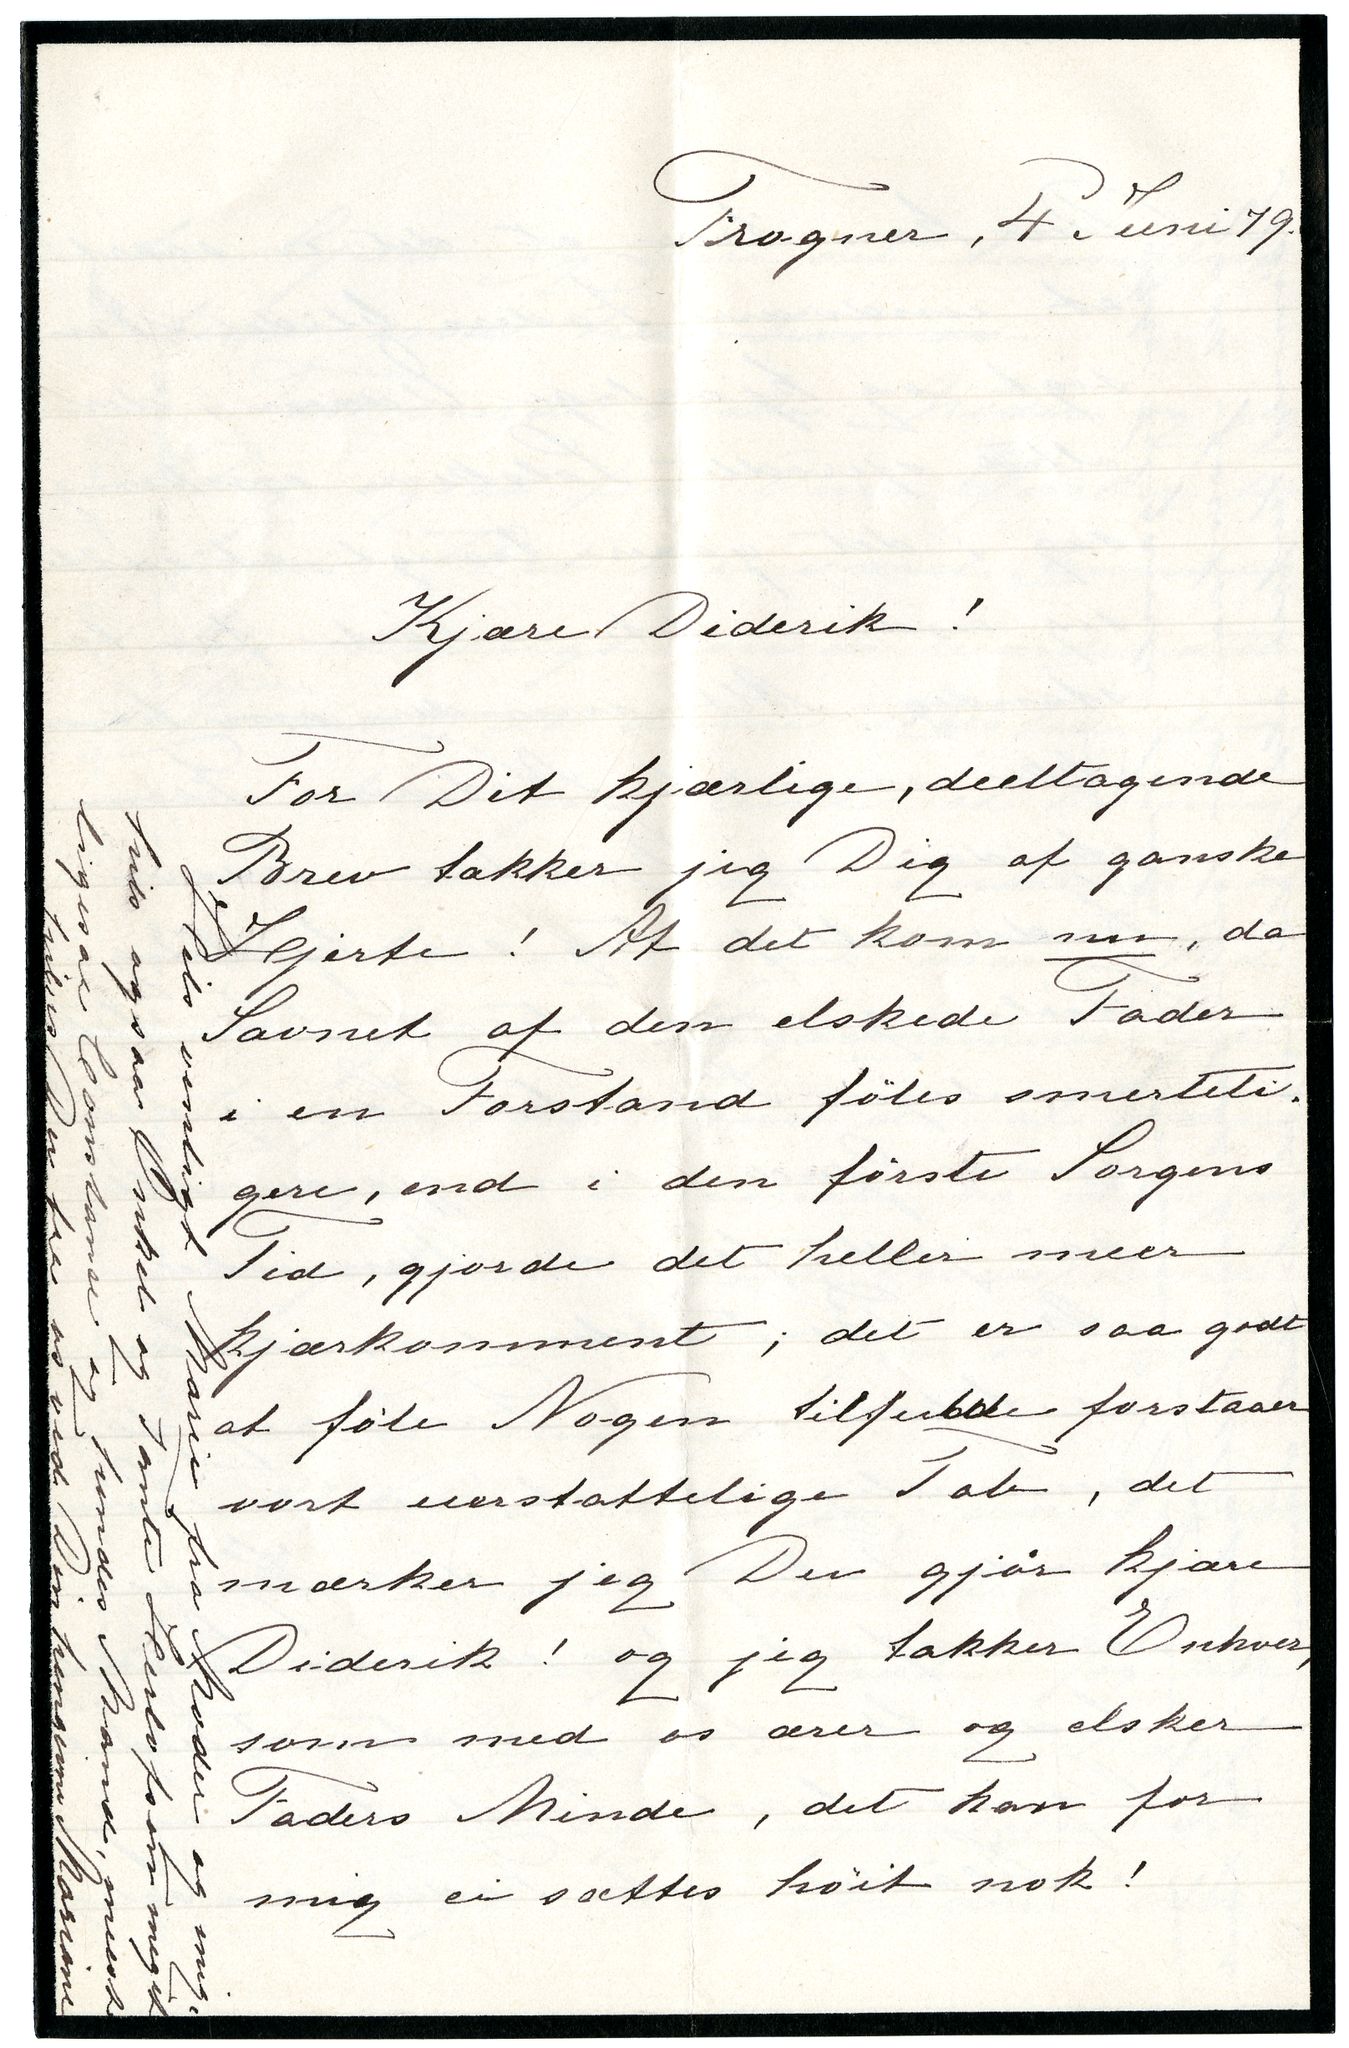 Frogner, 4 Juni 79.
Kjære Diderik!
For Dit kjærlige, deeltagende
Brev takker jeg Dig af ganske
Hjerte! At det kom nu, da
Savnet af den elskede Fader
i en Forstand föles smerteli-
gere, end i den förste Sorgens
Tid, gjorde det heller meer
kjærkomment; det er saa godt
at föle Nogen tilfulde forstaaer
vort uerstattelige Tab, det
mærker jeg Du gjör kjære
Diderik! og jeg takker Enhver,
som med os ærer og elsker
Faders Minde, det kan for
mig ei sættes höit nok!
Hils venligt Marie fra Moder og mig,
hils ogsaa Onkel og Tante Herlofsom meget
ligesaa Constance og hendes Mand, meest
hilses Du fra os ved Din hengivne Mariane